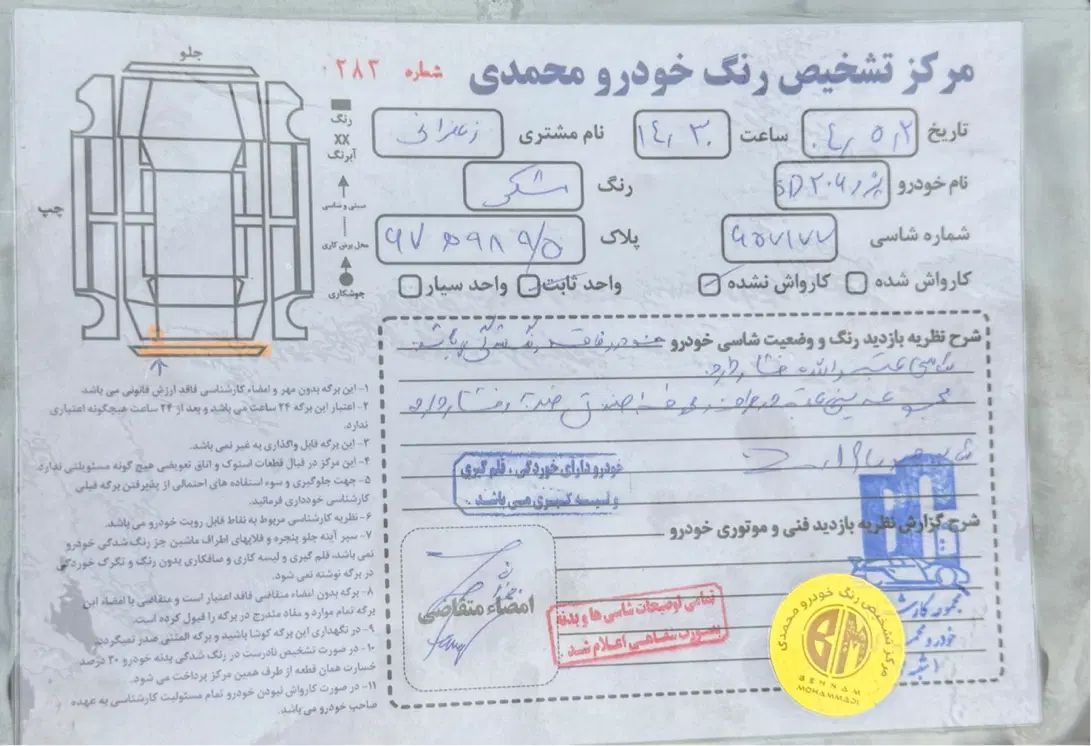 مرکز تشخیص رنگ خودرو محمدی
شماره ۰۲۸۲
تاریخ ۰۴,۵,۲ ساعت ۱۴,۳۰ نام مشتری
نام خودرو پژو ۲۰۶ SD رنگ مشکی
شماره شاسی ۶۵۷۱۷۷ پلاک
کارواش شده کارواش نشده واحد ثابت واحد سیار
جلو
چپ
رنگ
XX
آبرنگ
سینی و شاسی
محل بونی کاری
جوشکاری
شرح نظریه بازدید رنگ و وضعیت شاسی خودرو خودرو فاقد رنگ شدگی میباشد
خودرو دارای خوردگی، قلم گیری
و لیسه گیری می باشد.
شرح گزارش نظریه بازدید فنی و موتوری خودرو
امضاء متقاضی
تمامی توضیحات شاسی ها و بدنه
بصورت شفاهی اعلام شد.
مرکز تشخیص رنگ خودرو محمدی
BM
BEHNAM
MOHAMMADI
۱- این برگه بدون مهر و امضاء کارشناسی فاقد ارزش قانونی می باشد
۲- اعتبار این برگه ۲۴ ساعت می باشد و بعد از ۲۴ ساعت هیچگونه اعتباری
ندارد.
۳- این برگه قابل واگذاری به غیر نمی باشد.
۴- این مرکز در قبال قطعات استوک و اتاق تعویضی هیچ گونه مسئولیتی ندارد.
۵- جهت جلوگیری و سوء استفاده های احتمالی از پذیرفتن برگه قبلی
کارشناسی خودداری فرمائید.
۶- نظریه کارشناسی مربوط به نقاط قابل رویت خودرو می باشد.
۷- سپر آینه جلو پنجره و قلابهای اطراف ماشین جز رنگ شدگی خودرو
نمی باشد، قلم گیری و لیسه کاری و صافکاری بدون رنگ و تگرگ خوردگی
در برگه نوشته نمی شود.
۸- برگه بدون امضاء متقاضی فاقد اعتبار است و متقاضی با امضاء این
برگه تمام موارد و مفاد مندرج در برگه را قبول کرده است.
۹- در نگهداری این برگه کوشا باشید و برگه المثنی صادر نمیگردد.
۱۰- در صورت تشخیص نادرست در رنگ شدگی بدنه خودرو ۳۰ درصد
خسارت همان قطعه از طرف همین مرکز پرداخت می شود.
۱۱- در صورت کارواش نبودن خودرو تمام مسئولیت کارشناسی به عهده
صاحب خودرو می باشد.